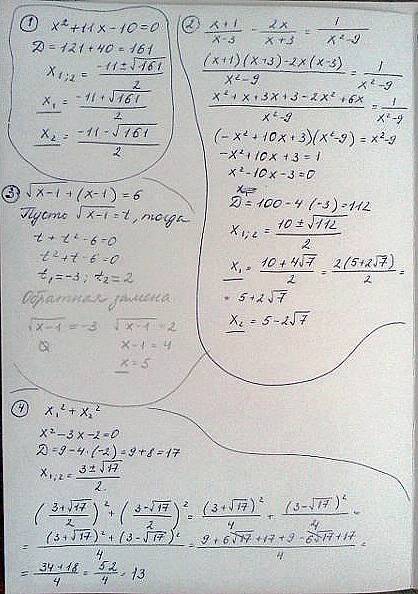 ① x²+11x-10=0
D=121+40=161
x₁;₂ = (-11±√161)/2
x₁ = (-11+√161)/2
x₂ = (-11-√161)/2
② (x+1)/(x-3) - 2x/(x+3) = 1/(x²-9)
((x+1)(x+3)-2x(x-3))/(x²-9) = 1/(x²-9)
(x²+x+3x+3-2x²+6x)/(x²-9) = 1/(x²-9)
(-x²+10x+3)(x²-9)=x²-9
-x²+10x+3=1
x²-10x-3=0
D=100-4·(-3)=112
x₁;₂ = (10±√112)/2
x₁ = (10+4√7)/2 = 2(5+2√7)/2 =
= 5+2√7
x₂ = 5-2√7
③ √x-1 + (x-1) = 6
Пусть √x-1 = t, тогда
t+t²-6=0
t²+t-6=0
t₁=-3; t₂=2
Обратная замена
√x-1 = -3 √x-1 = 2
x-1=4
x=5
④ x₁²+x₂²
x²-3x-2=0
D=9-4·(-2)=9+8=17
x₁;₂ = (3±√17)/2
((3+√17)/2)² + ((3-√17)/2)² = (3+√17)²/4 + (3-√17)²/4 =
= ((3+√17)²+(3-√17)²)/4 = (9+6√17+17+9-6√17+17)/4 =
= (34+18)/4 = 52/4 = 13